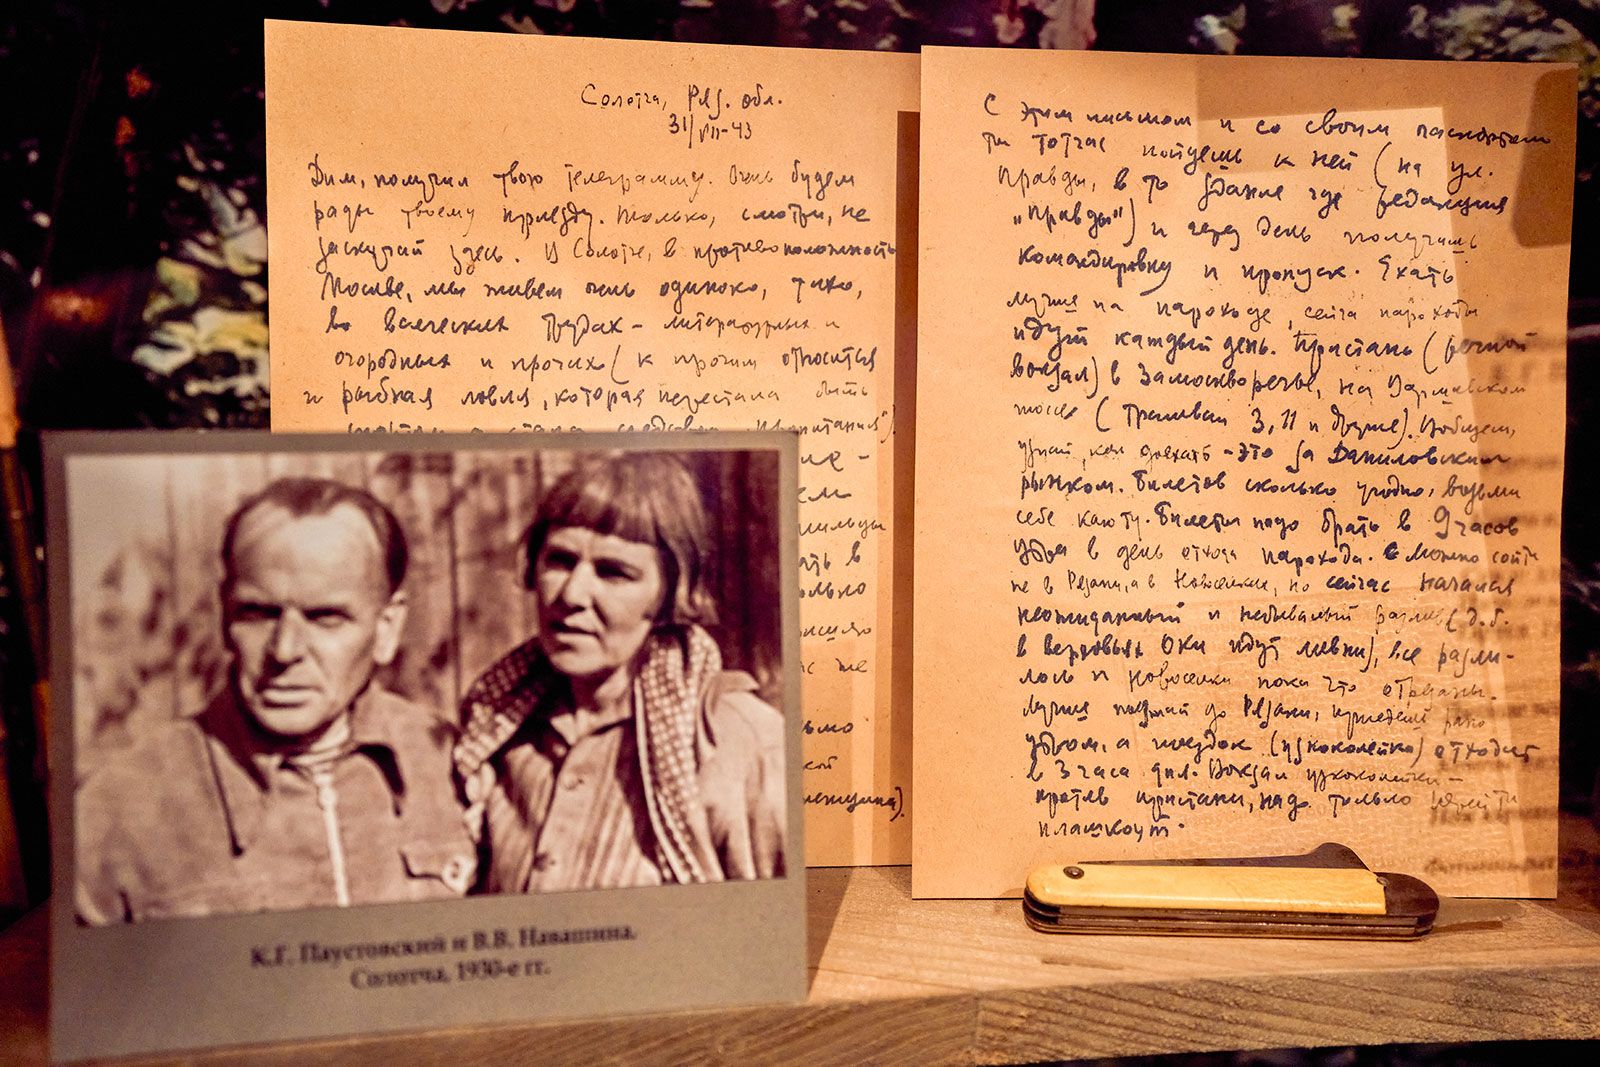 Солотча, Ряз. обл.
31/VII-43
Дим, получил твою телеграмму. Очень будем
рады твоему приезду. Только, смотри, не
заскучай здесь. В Солотче, в противоположность
Москве, мы живем очень одиноко, тихо,
во всяческих трудах – литературных и
огородных и прочих (к прочим относится
и рыбная ловля, которая перестала быть
средством "пропитания").
ать в
же
ской
женщина).
С этим письмом и со своим паспортом
ты тотчас пойдешь к ней (на ул.
Правды, в то здание где редакция
"Правды") и через день получишь
командировку и пропуск. Ехать
лучше на пароходе, сейчас пароходы
идут каждый день. Пристань (речной
вокзал) в Замоскворечье, на Варшавском
шоссе (трамваи 3, 11 и другие). Вобщем,
узнай, как доехать – это за Даниловским
рынком. Билетов сколько угодно, возьми
себе каюту. Билеты надо брать в 9 часов
утра в день отхода парохода. Можно сойти
не в Рязани, а в Новоселках, но сейчас начался
неожиданный и небывалый разлив (д.б.
в верховьях Оки идут ливни), все разли-
лось и Новоселки пока что отрезаны.
Лучше поезжай до Рязани, приедешь рано
утром, а поездок (узкоколейка) отходит
в 3 часа дня. Вокзал узкоколейки –
против пристани, надо только перейти
плашкоут.
К.Г. Паустовский и В.В. Навашина.
Солотча, 1930-е гг.